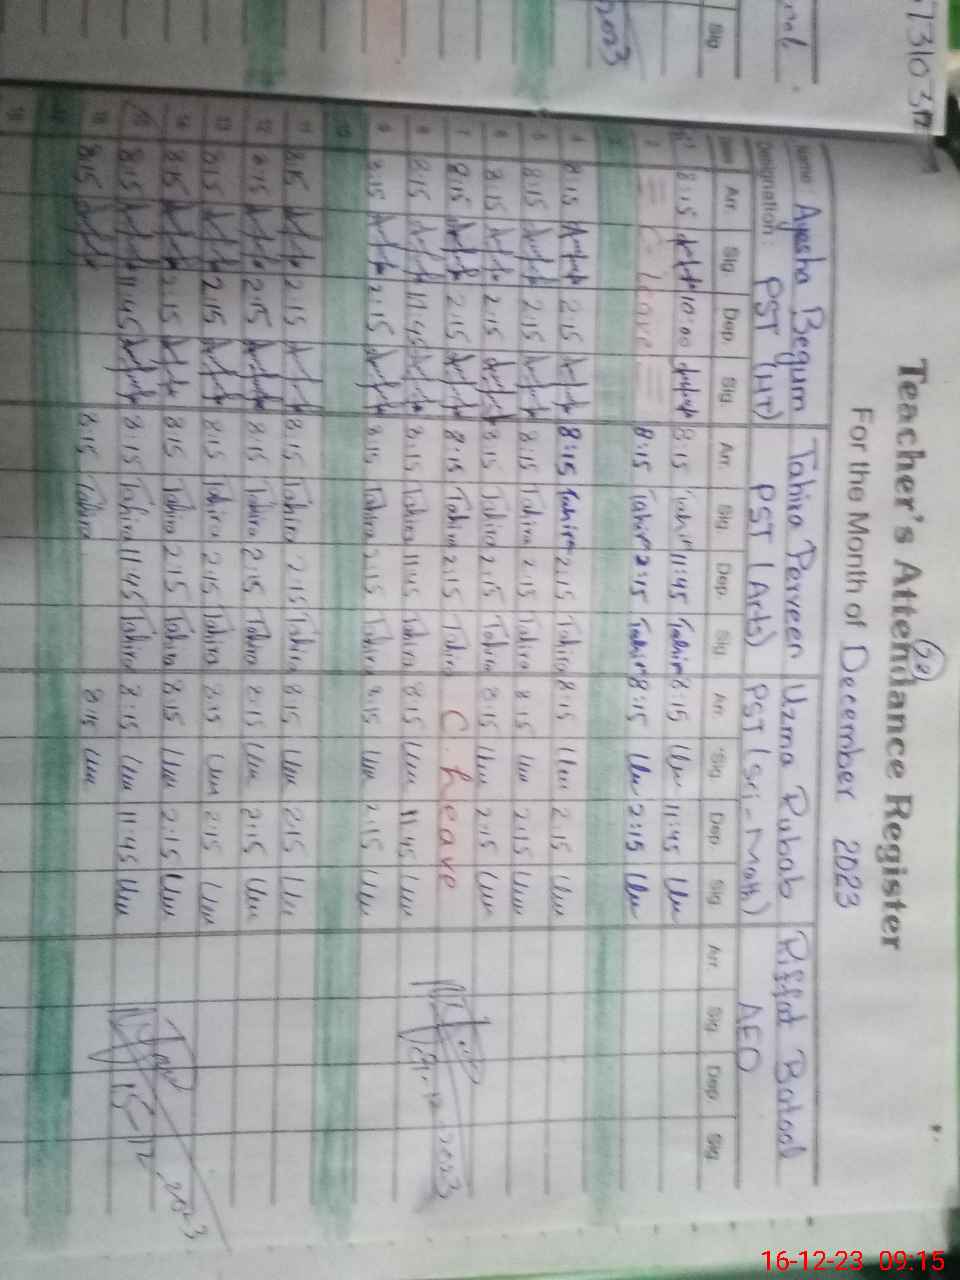 Teacher's Attendance Register
For the Month of December 2023
Name: Ayesha Begum Tahira Perveen Uzma Rubab Riffat Batool
Designation: PST (HT) PST (Arts) PST (Sci-Math) AEO
Date Arr. Sig. Dep. Sig. Arr. Sig. Dep. Sig. Arr. Sig. Dep. Sig. Arr. Sig. Dep. Sig.
1 8:15 10:00 8:15 Tahira 11:45 Tahira 8:15 11:45
2 C. Leave 8:15 Tahira 2:15 Tahira 8:15 2:15
3
4 8:15 2:15 8:15 Tahira 2:15 Tahira 8:15 2:15
5 8:15 2:15 8:15 Tahira 2:15 Tahira 8:15 2:15
6 8:15 2:15 8:15 Tahira 2:15 Tahira 8:15 2:15
7 8:15 2:15 8:15 Tahira 2:15 Tahira C. Leave
8 8:15 11:45 8:15 Tahira 11:45 Tahira 8:15 11:45
9 8:15 2:15 8:15 Tahira 2:15 Tahira 8:15 2:15
10
11 8:15 2:15 8:15 Tahira 2:15 Tahira 8:15 2:15
12 8:15 2:15 8:15 Tahira 2:15 Tahira 8:15 2:15
13 8:15 2:15 8:15 Tahira 2:15 Tahira 8:15 2:15
14 8:15 2:15 8:15 Tahira 2:15 Tahira 8:15 2:15
15 8:15 11:45 8:15 Tahira 11:45 Tahira 8:15 11:45
16 8:15 8:15 Tahira 8:15
17
18
Sig.
2023
16-12-23 09:15